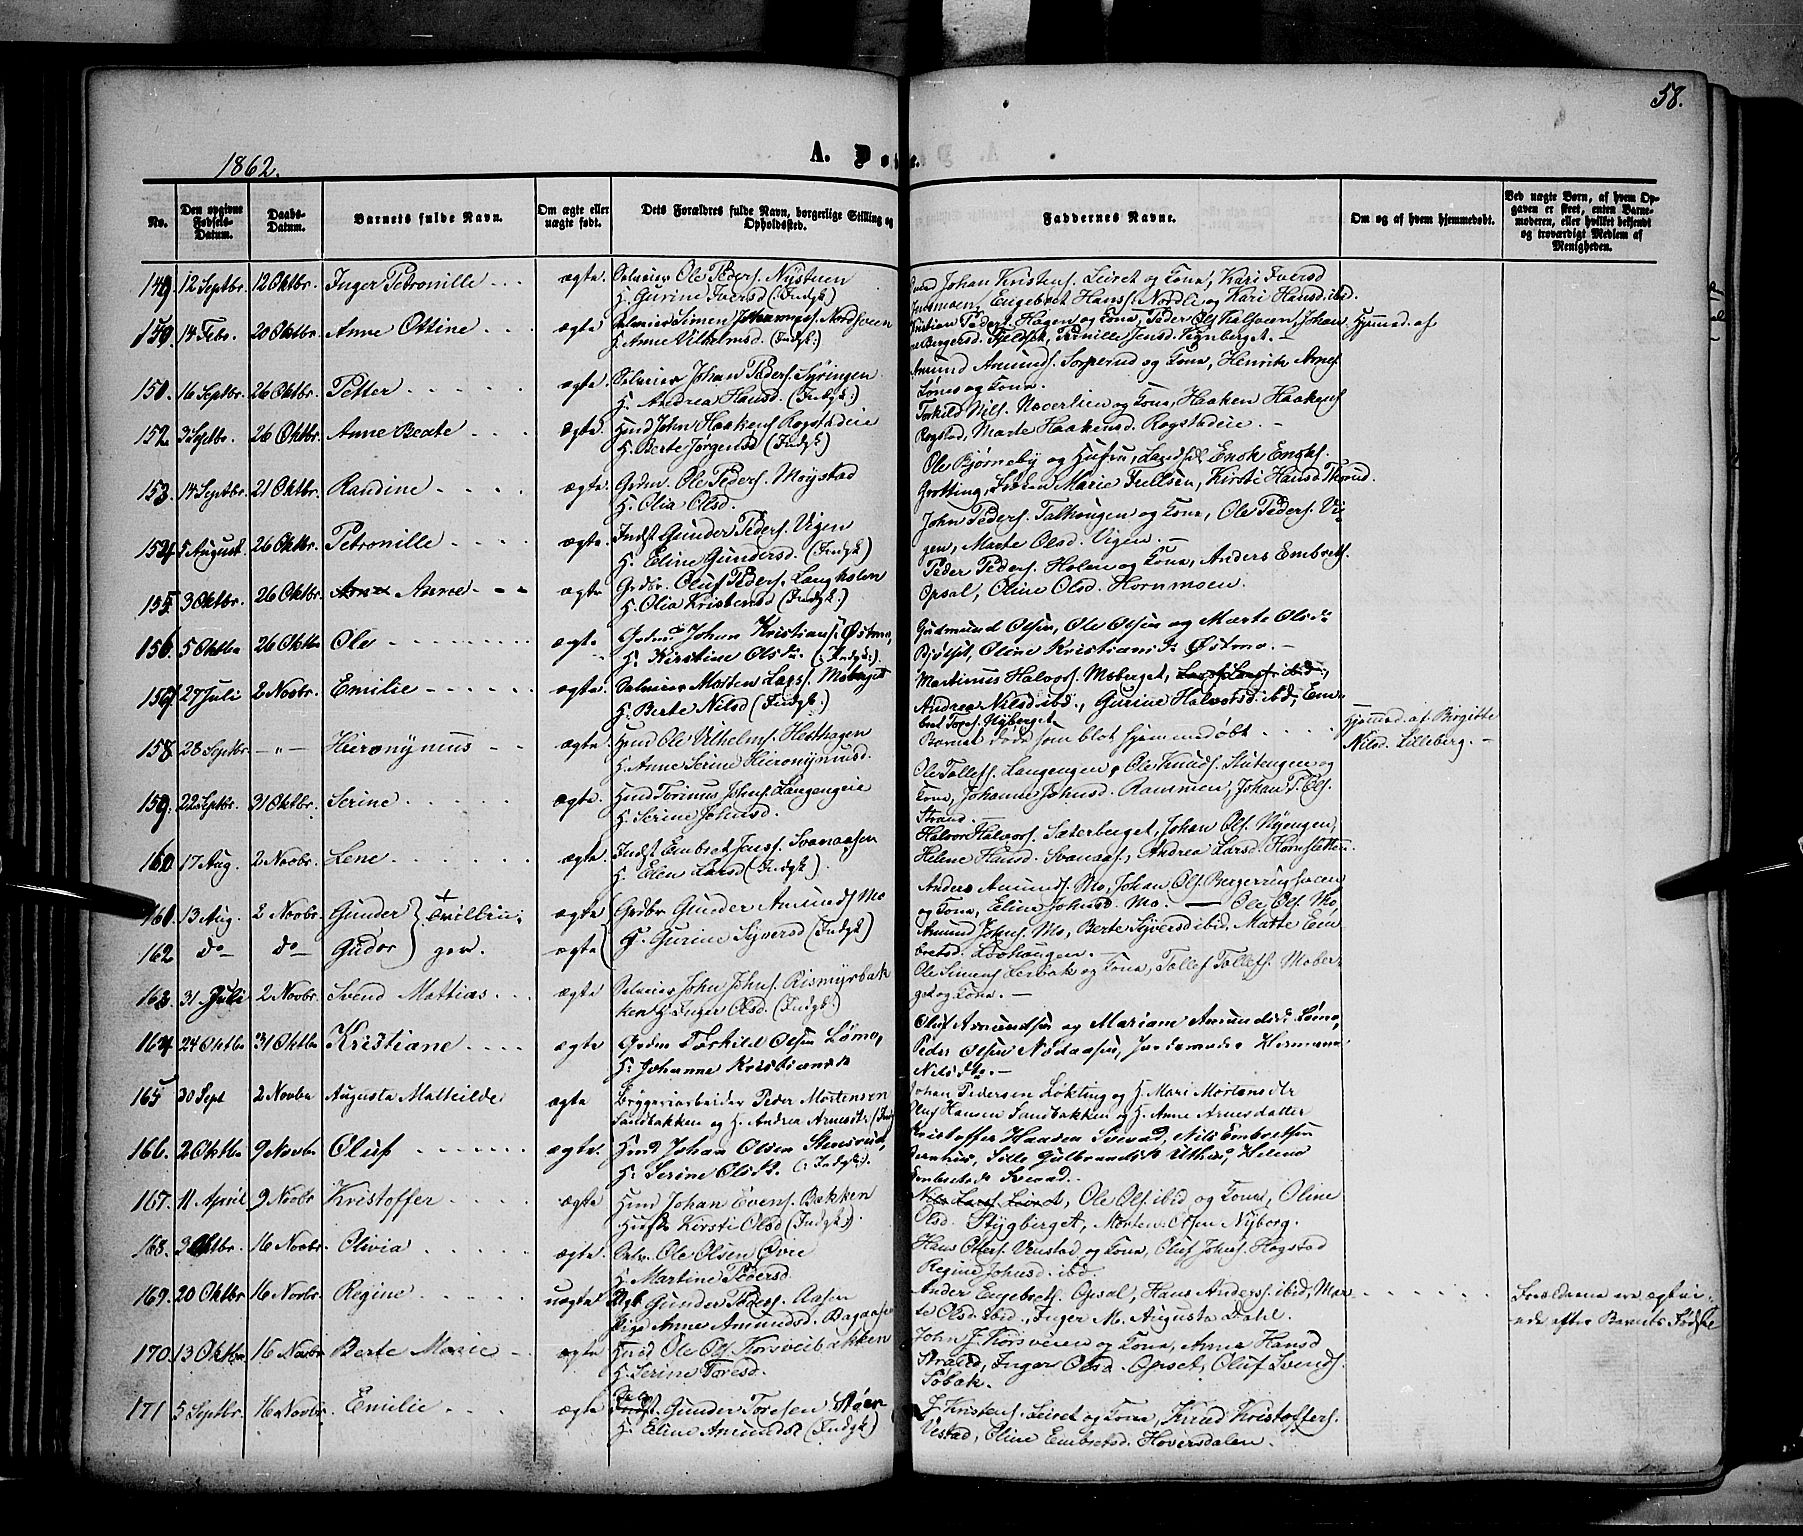 58.
1862.
A. Døbte.
No.
Den opgivne Fødsels-Datum.
Daabs-Datum.
Barnets fulde Navn.
Om ægte eller uægte født.
Dets Forældres fulde Navn, borgerlige Stilling og Opholdssted.
Faddernes Navne.
Om og af hvem hjemmedøbt.
Ved uægte Børn, af hvem Opgaven er skeet, enten Barnemoderen, eller hvilket bekjendt og troværdigt Medlem af Menigheden.
149. 12 Septbr. 12 Oktbr. Inger Petronille ægte Selveier Ole Peders. Nystuen
H. Gurine Iversd (Indgk:)
Johan Kristens. Leiret og Kona, Kari Iversd
Engebret Hans. Nordli og Kari Hansd. ibd.
150. 14 Febr. 20 Oktbr. Anne Ottine ægte Selveier Simen Johannes. Nordsveen
H. Anne Vilhelmsd. (Indgk:)
Kristian Peders. Hagen og Kona, Peder Ols. Kalsveen, Johan
Hjemmd. af
150. 16 Septbr. 26 Oktbr. Petter ægte Selveier Johan Peders. Syringen
H. Andrea Hansd. (Indgk:)
Amund Amunds. Sorperud og Kona, Henrik Arnes.
og Kona.
152. 3 Septbr. 26 Oktbr. Anne Beate ægte Hmd John Haakens. Rogstadeie
H. Berte Jørgensd (Indgk:)
Torkild Nils. Naverlien og Kona, Haaken Haakens.
Rogstad, Marte Haakensd. Rogstadeie.
153. 14 Septbr. 21 Oktbr. Randine ægte. Grdm. Ole Peders. Møystad
H. Olia Olsd.
Ole Bjørneby og Hustru, Enok Enoks.
Grotting, Frøken Marie Kirsti Hansd.
154. 5 August 26 Oktbr. Petronille ægte. Indst Gunder Peders. Vigen
H. Eline Gundersd. (Indgk:)
John Peders. Talhaugen og Kona, Ole Peders. Vi-
gen, Marte Olsd. Vigen.
155. 3 Oktbr. 26 Oktbr. Anne ægte Grdbr. Oluf Peders. Langholen
H. Olia Kristensd (Indgk:)
Peder Peders. Holen og Kona, Anders Embrets.
Opsal, Oline Olsd. Hornmoen.
156. 5 Oktbr 26 Oktbr Ole ægte Grdm Johan Kristians. Østmo,
H. Kirstine Olsdr. (: Indgk:).
Gudmund Olsen, Ole Olsen og Marte Olsdr
Oline Kristiansdr Østmo.
27 Juli 2 Novbr. Emilie ægte. Selveier Morten Lars. Moberget
H. Berte Nilsd (Indgk:)
Martinus Halvors. Moberget, Lars Lars. ibid.,
Andrea Nilsd ibd., Gurine Halvorsd. ibd, Em-
bret Nyberget
158. 28 Septbr. Hieronymus ægte Hmd Ole Vilhelms. Hesthagen
H. Anne Serine Hieronymusd.
Barnet døde som blot hjemmedøbt
Hjemmd. af Birgitte
Nilsd. Lilleberg.
159. 22 Septbr. 31 Oktbr. Serine ægte Hmd Torinus Johns. Langengeie
H. Serine Johnsd.
Ole Tollefs. Langengen, Ole Knuds. Slutengen og
Kona, Johanne Johnsd. Rammen, Johan P. Ols.
Strand.
160. 17 Aug. 2 Novbr. Lene ægte Indst Embret Jens. Svenaasen
H. Elen Larsd (Indgk).
Halvor Halvors. Sæterberget, Johan Ols. Nyengen,
Helene Hansd. Svenaas., Andrea Larsd. Hornsletten
161. 13 Aug. 2 Novbr. Gunder } Tvillin- ægte Grdbr Gunder Amunds Mo
162. do do Gudor } ger. ægte H. Gurine Syversd (Indgk:)
Anders Amunds. Mo, Johan Ols. Bergeren
og Kona, Eline Johnsd. Mo. Ole Ols. Mo,
Amund Johns. Mo, Berte Syversd ibid. Marte Em-
bretsd.
163. 31 Juli 2 Novbr. Svend Mattias ægte Selveier John Johns. Rismyrbak-
ken H. Inger Olsd. (Indgk:)
Ole Simens. Lerbak og Kona, Tollef Tollefs. Mober-
get og Kona.
164. 24 Oktbr 31 Oktbr Kristiane ægte Grdm Torkild Olsen Lømo,
H. Johanne Kristiansdr
Oluf Amundsen og Mariane Amundsdr Lømo,
Peder Olsen Nødaasen, Hermana
Nilsdtr.
165 30 Sept 2 Novbr Augusta Mathilde ægte Bryggeriarbeider Peder Mortensen
Sandbakken og H. Andrea Arnesdtr.
Johan Pedersen Løkting og H. Mari Mortensdtr
Oluf Hansen Sandbakken og H. Anne Arnesdatter
166. 2 Oktbr 9 Novbr Oluf ægte. Hmd Johan Olsen Stensrud,
H. Serine Olsdr. (: Indgk:).
Kristoffer Haagen Sverad, Nils Embretsen
Sille Gulbrandsdr Helene
Embretsdr Sverad.
167. 11 April 9 Novbr Kristoffer ægte Hmd Johan Evens. Bakken
Hustr Kirsti Olsd (Indgk:)
Nils Lars. Leiret, Ole Ols. ibid og Kona, Oline
Olsd. Stygberget, Morten Olsen Nyborg.
168. 3 Oktbr. 16 Novbr. Olivia ægte Selv. Ole Olsen Øvre
H. Martine Pedersd.
Hans Olsens. Venstad og Kona, Oluf Johns. Hogstad
Regine Johnsd. ibd.
169. 20 Oktbr 16 Novbr. Regine uægte Ungk. Gunder Peders. Aasen
Pige Anne Amundsd. Bagaasen
Ander Engebrets. Opsal, Hans Anderss. ibid, Mar-
te Olsd. ibid., Inger M. Augusta Dahl.
Forældrene ere ægtevi-
ede efter Barnets Fødsel
170. 13 Oktbr 16 Novbr Berte Marie ægte Hmd Ole Ols. Korsveibakken
H. Serine Toresd.
John J. Korsveien og Kona, Anne Hansd
Inger Olsd. Opset, Oluf Svends.
Søbak.
171 5 Septbr. 16 Novbr. Emilie ægte Gunder Toresen Støen
H. Eline Amundsd (Indgk:)
J. Kristens. Leiret og Kona, Knud Kristoffers.
Vestad, Oline Embretsd. Hoversdalen.